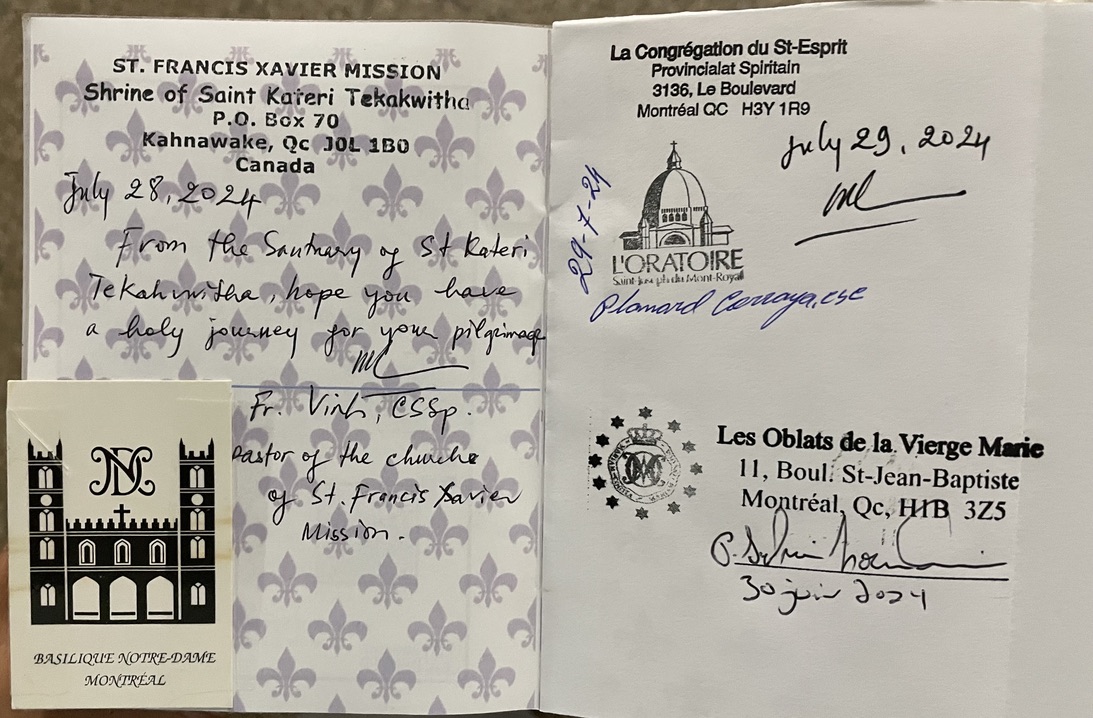 ST. FRANCIS XAVIER MISSION
Shrine of Saint Kateri Tekakwitha
P.O. Box 70
Kahnawake, Qc J0L 1B0
Canada
July 28, 2024
From the Santuary of St Kateri
Tekahwitha, hope you have
a holy journey for your pilgrimage
Fr. Vinh, CSSp.
Pastor of the churche
of St. Francis Xavier
Mission.
BASILIQUE NOTRE-DAME
MONTRÉAL
La Congrégation du St-Esprit
Provincialat Spiritain
3136, Le Boulevard
Montréal QC H3Y 1R9
July 29, 2024
29-7-24
L'ORATOIRE
Saint-Joseph du Mont-Royal
Les Oblats de la Vierge Marie
11, Boul. St-Jean-Baptiste
Montréal, Qc, H1B 3Z5
30 juin 2024